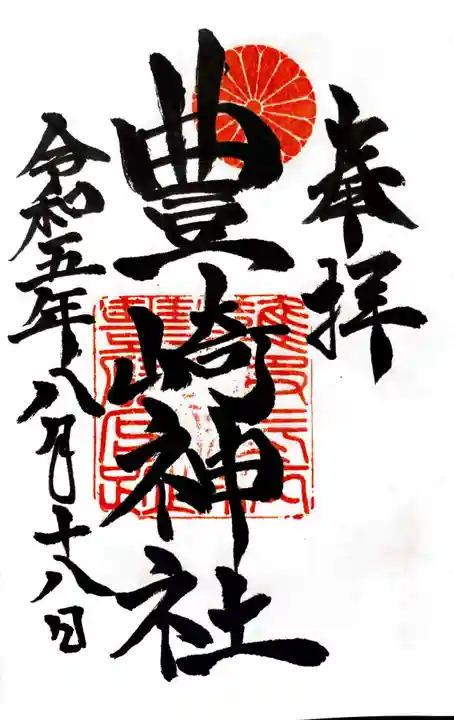 奉拝
豊崎神社
令和五年八月十八日